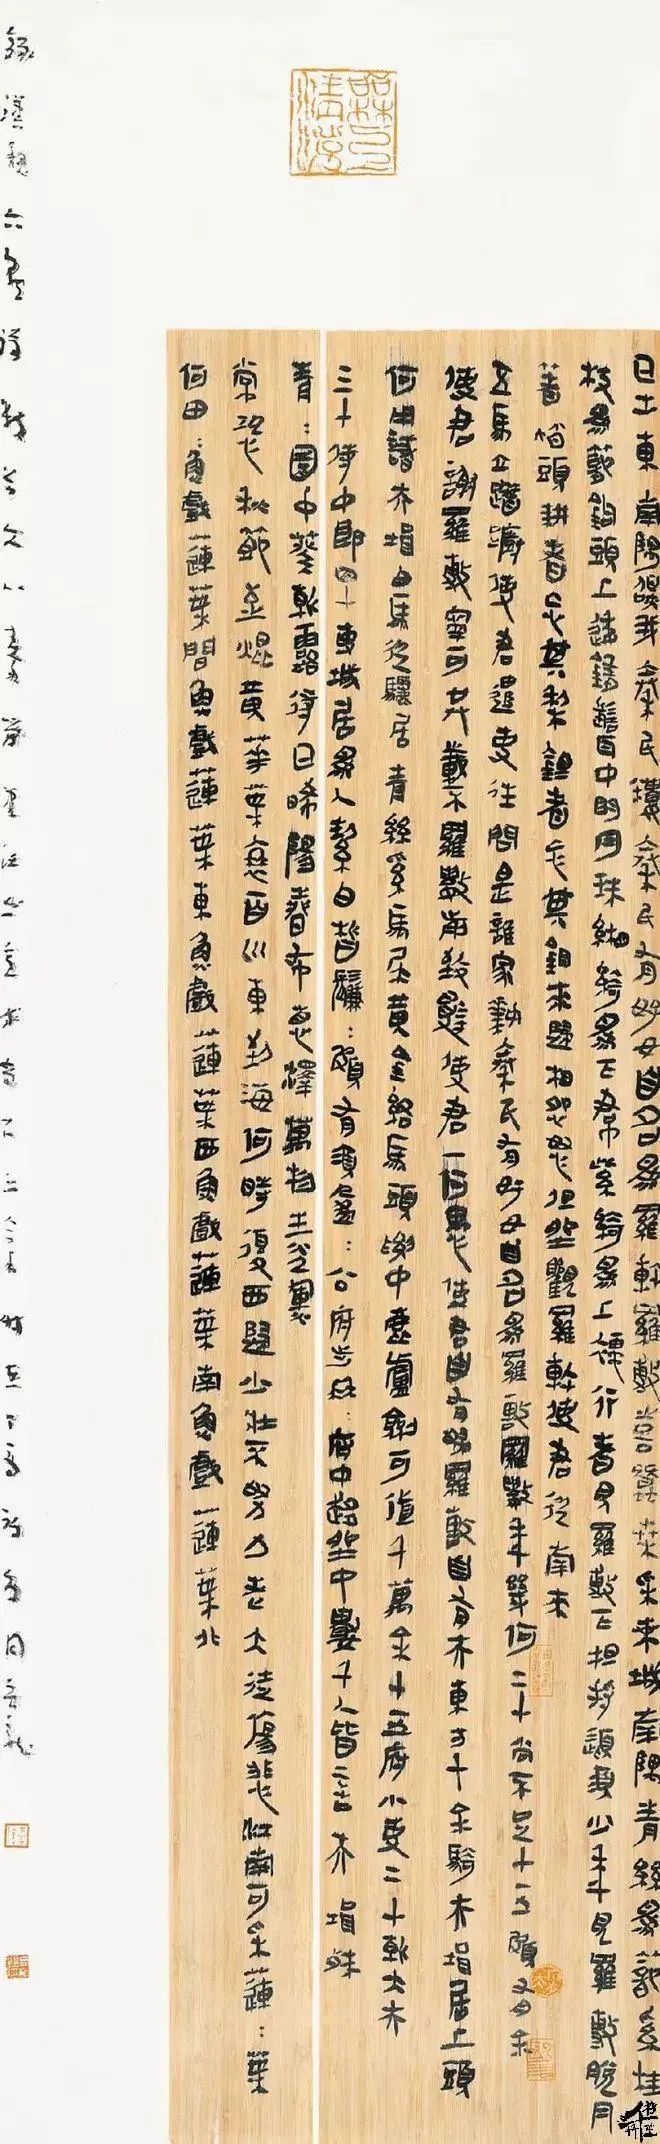 日出東南隅照我秦氏樓秦氏有好女自名為羅敷羅敷喜蠶桑采桑城南隅青絲為籠系桂
枝為籠鉤頭上倭墮髻耳中明月珠緗綺為下帬紫綺為上襦行者見羅敷下擔捋頾須少年見羅敷脫冃
著帩頭耕者忘其犁鋤者忘其鋤來歸相怨怒但坐觀羅敷使君從南來
五馬立踟躕使君遣吏往問是誰家姝秦氏有好女自名為羅敷羅敷年幾何二十尚不足十五頗有余
使君謝羅敷寧可共載不羅敷前致辭使君一何愚使君自有婦羅敷自有夫東方千余騎夫壻居上頭
何用識夫壻白馬從驪居青絲系馬尾黃金絡馬頭腰中鹿盧劍可值千萬余十五府小吏二十朝大夫
三十侍中郎四十專城居為人潔白皙鬑：頗有須盈：公府步冉：府中趨坐中數千人皆言夫壻殊
青：園中葵朝露待日晞陽春布德澤萬物生光輝
常恐秋節至焜黃華葉衰百川東到海何時復西歸少壯不努力老大徒傷悲江南可采蓮：葉
何田：魚戲蓮葉間魚戲蓮葉東魚戲蓮葉西魚戲蓮葉南魚戲蓮葉北